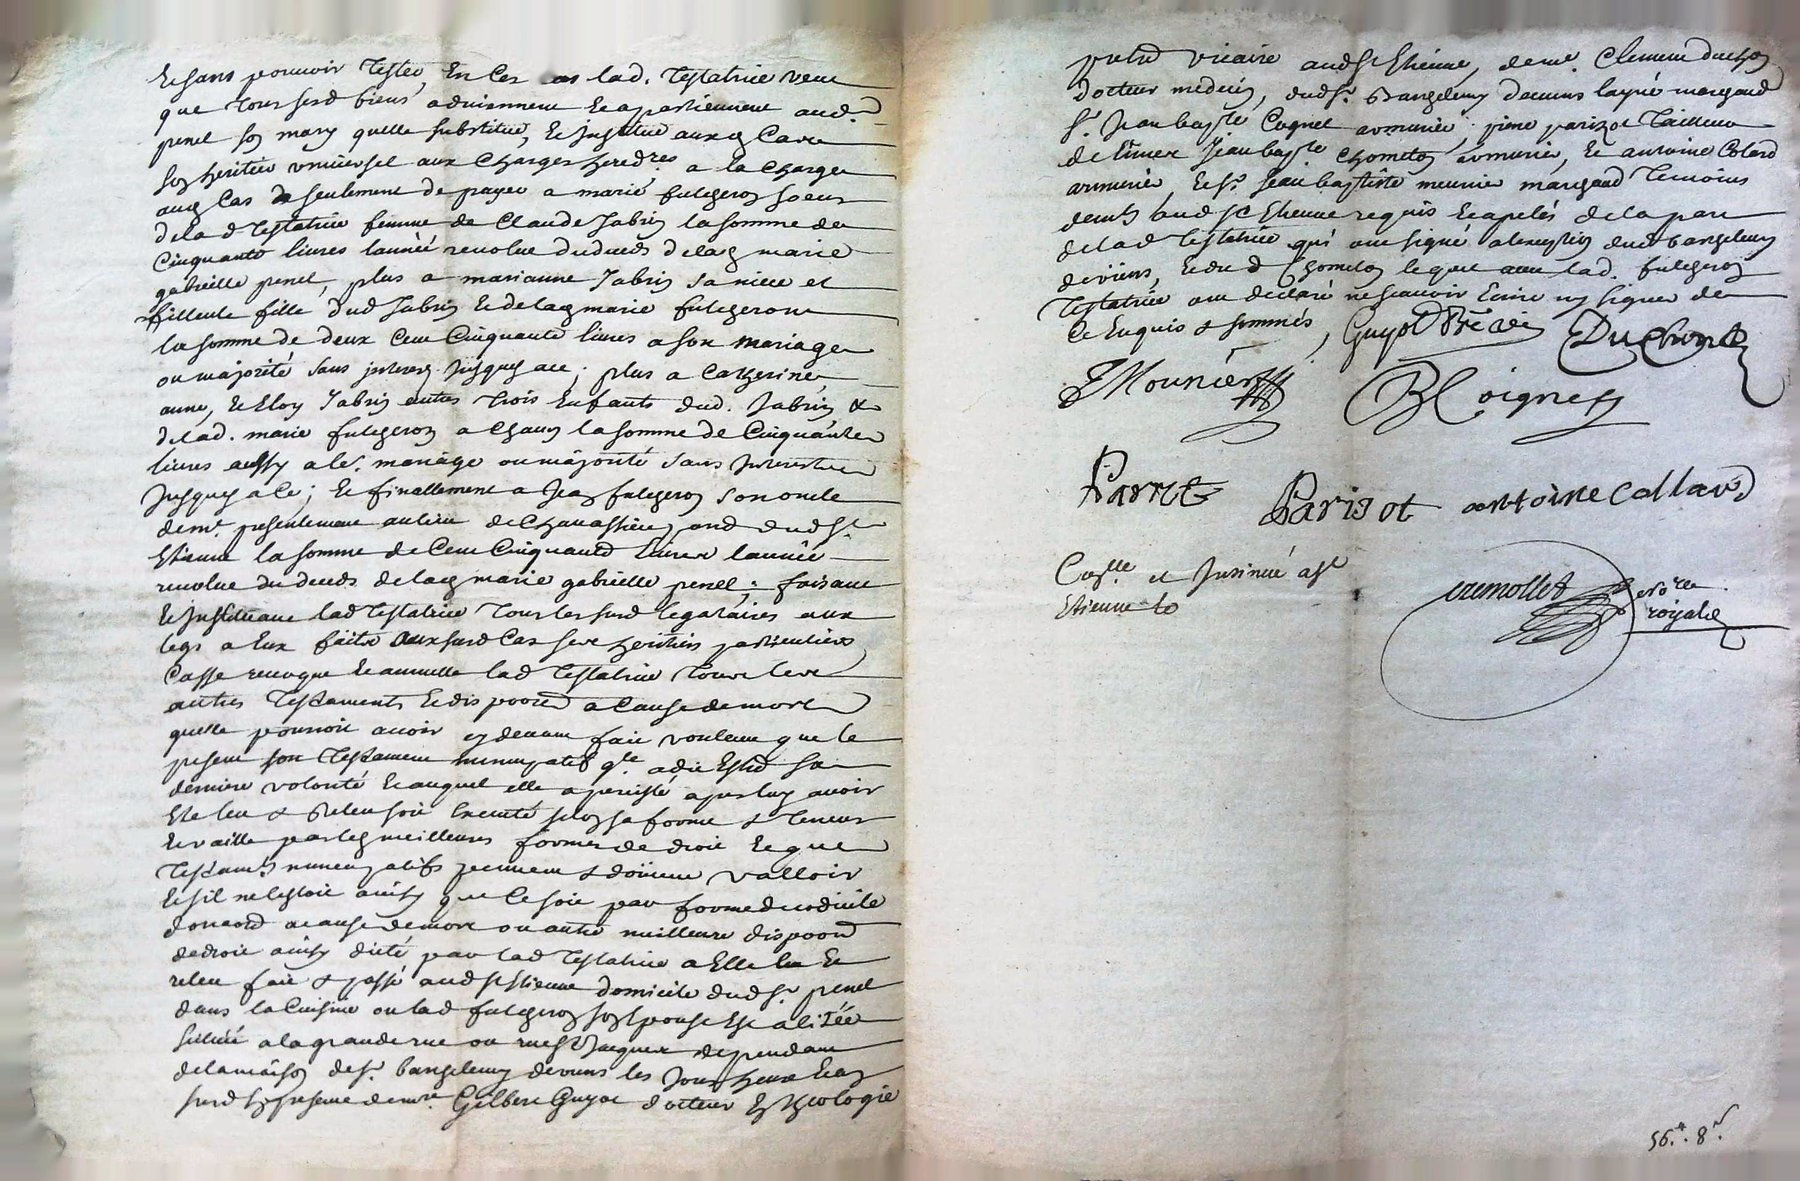 Et sans pouvoir tester, en ces cas lad. testatrice veut
que tous sesd biens adviennent et apartiennent aud.
penel so mary quelle substitue, et institue auxq Cas
so heritier universel aux charges heredres a la charge
auq Cas seulement de payer a marie fulcheron soeur
de la d testatrice femme de Claude Jabrin la somme de
Cinquante livres lannéé revolue du deceds de lad marie
gabrielle penel, plus a marianne Jabrin sa niece et
filleule fille dud Jabrin et de lad marie fulcheron
la somme de deux Cent Cinquante livres a son mariage
ou majorité sans interest jusques a ce; plus a Catherine
anne, et Eloy Jabrin autres trois Enfants dud. Jabrin &
de lad. marie fulcheron a chacun la somme de Cinquante
livres aussy a le. mariage ou majorité sans interest
jusques a ce; et finallement a Jean fulcheron son oncle
demt. presentement au lieu de Chavassieu dud St
Etienne la somme de Cent Cinquante livres lannéé
revolue du deceds de lad marie gabrielle penel; faisant
et instituant lad testatrice tous les susd legataires aux
legs a eux faits auxsusd Cas ses heritiers particuliers
Casse revoque et annulle lad testatrice tous les
autres testaments et disposons a cause de mort
quelle pourroit avoir cy devant fait voulant que le
present son testament nuncupatif qlle a dit Estre sa
derniere volonté et auquel elle a persisté apres luy avoir
Eté leu & releu soit Executé selon sa forme & teneur
et vaille par les meilleures formes de droit et que
testamts nuncupatifs peuvent & doivent valloir
et sil ne lestoit ainsy que ce soit par forme de codicile
donaon a cause de mort ou autre meilleure disposon
de droit ainsy dicté par lad testatrice a Elle leu et
releu fait & passé aud St Etienne domicile dud Sr. penel
dans la Cuisine ou lad fulcheron son Epouse Est alitéé
situéé a la grande rue ou rue St Jacques dependant
de la maison de Sr. Barthelemy devuns les jour heure et an
susd En presence de mre. Gilbert Guyot docteur En theologie
pretre vicaire aud St Etienne, de mr. Clement duchon
docteur medecin, dud Sr. Barthelemy devuns layné marchand
Sr. Jean bapte Cognet armurier, pierre parizot tailleur
de limes Jean bapte Chometon armurier, et antoine Colard
armurier et Sr. Jean baptiste meunier marchand temoins
demts aud St Etienne requis et apelés de la part
de lad testatrice qui ont signé a lexception dud barthelemy
devuns, et du d Chometon lequel avec lad. fulcheron
testatrice ont declaré ne scavoir Ecrire ny signer de
Ce Enquis & sommés, Guyot ptre vic Duchon
Mounier Coignet
Parisot antoine Collard
Conlle et Insinué a St
Etienne le
cremollet nore
royal
56.# 8s.